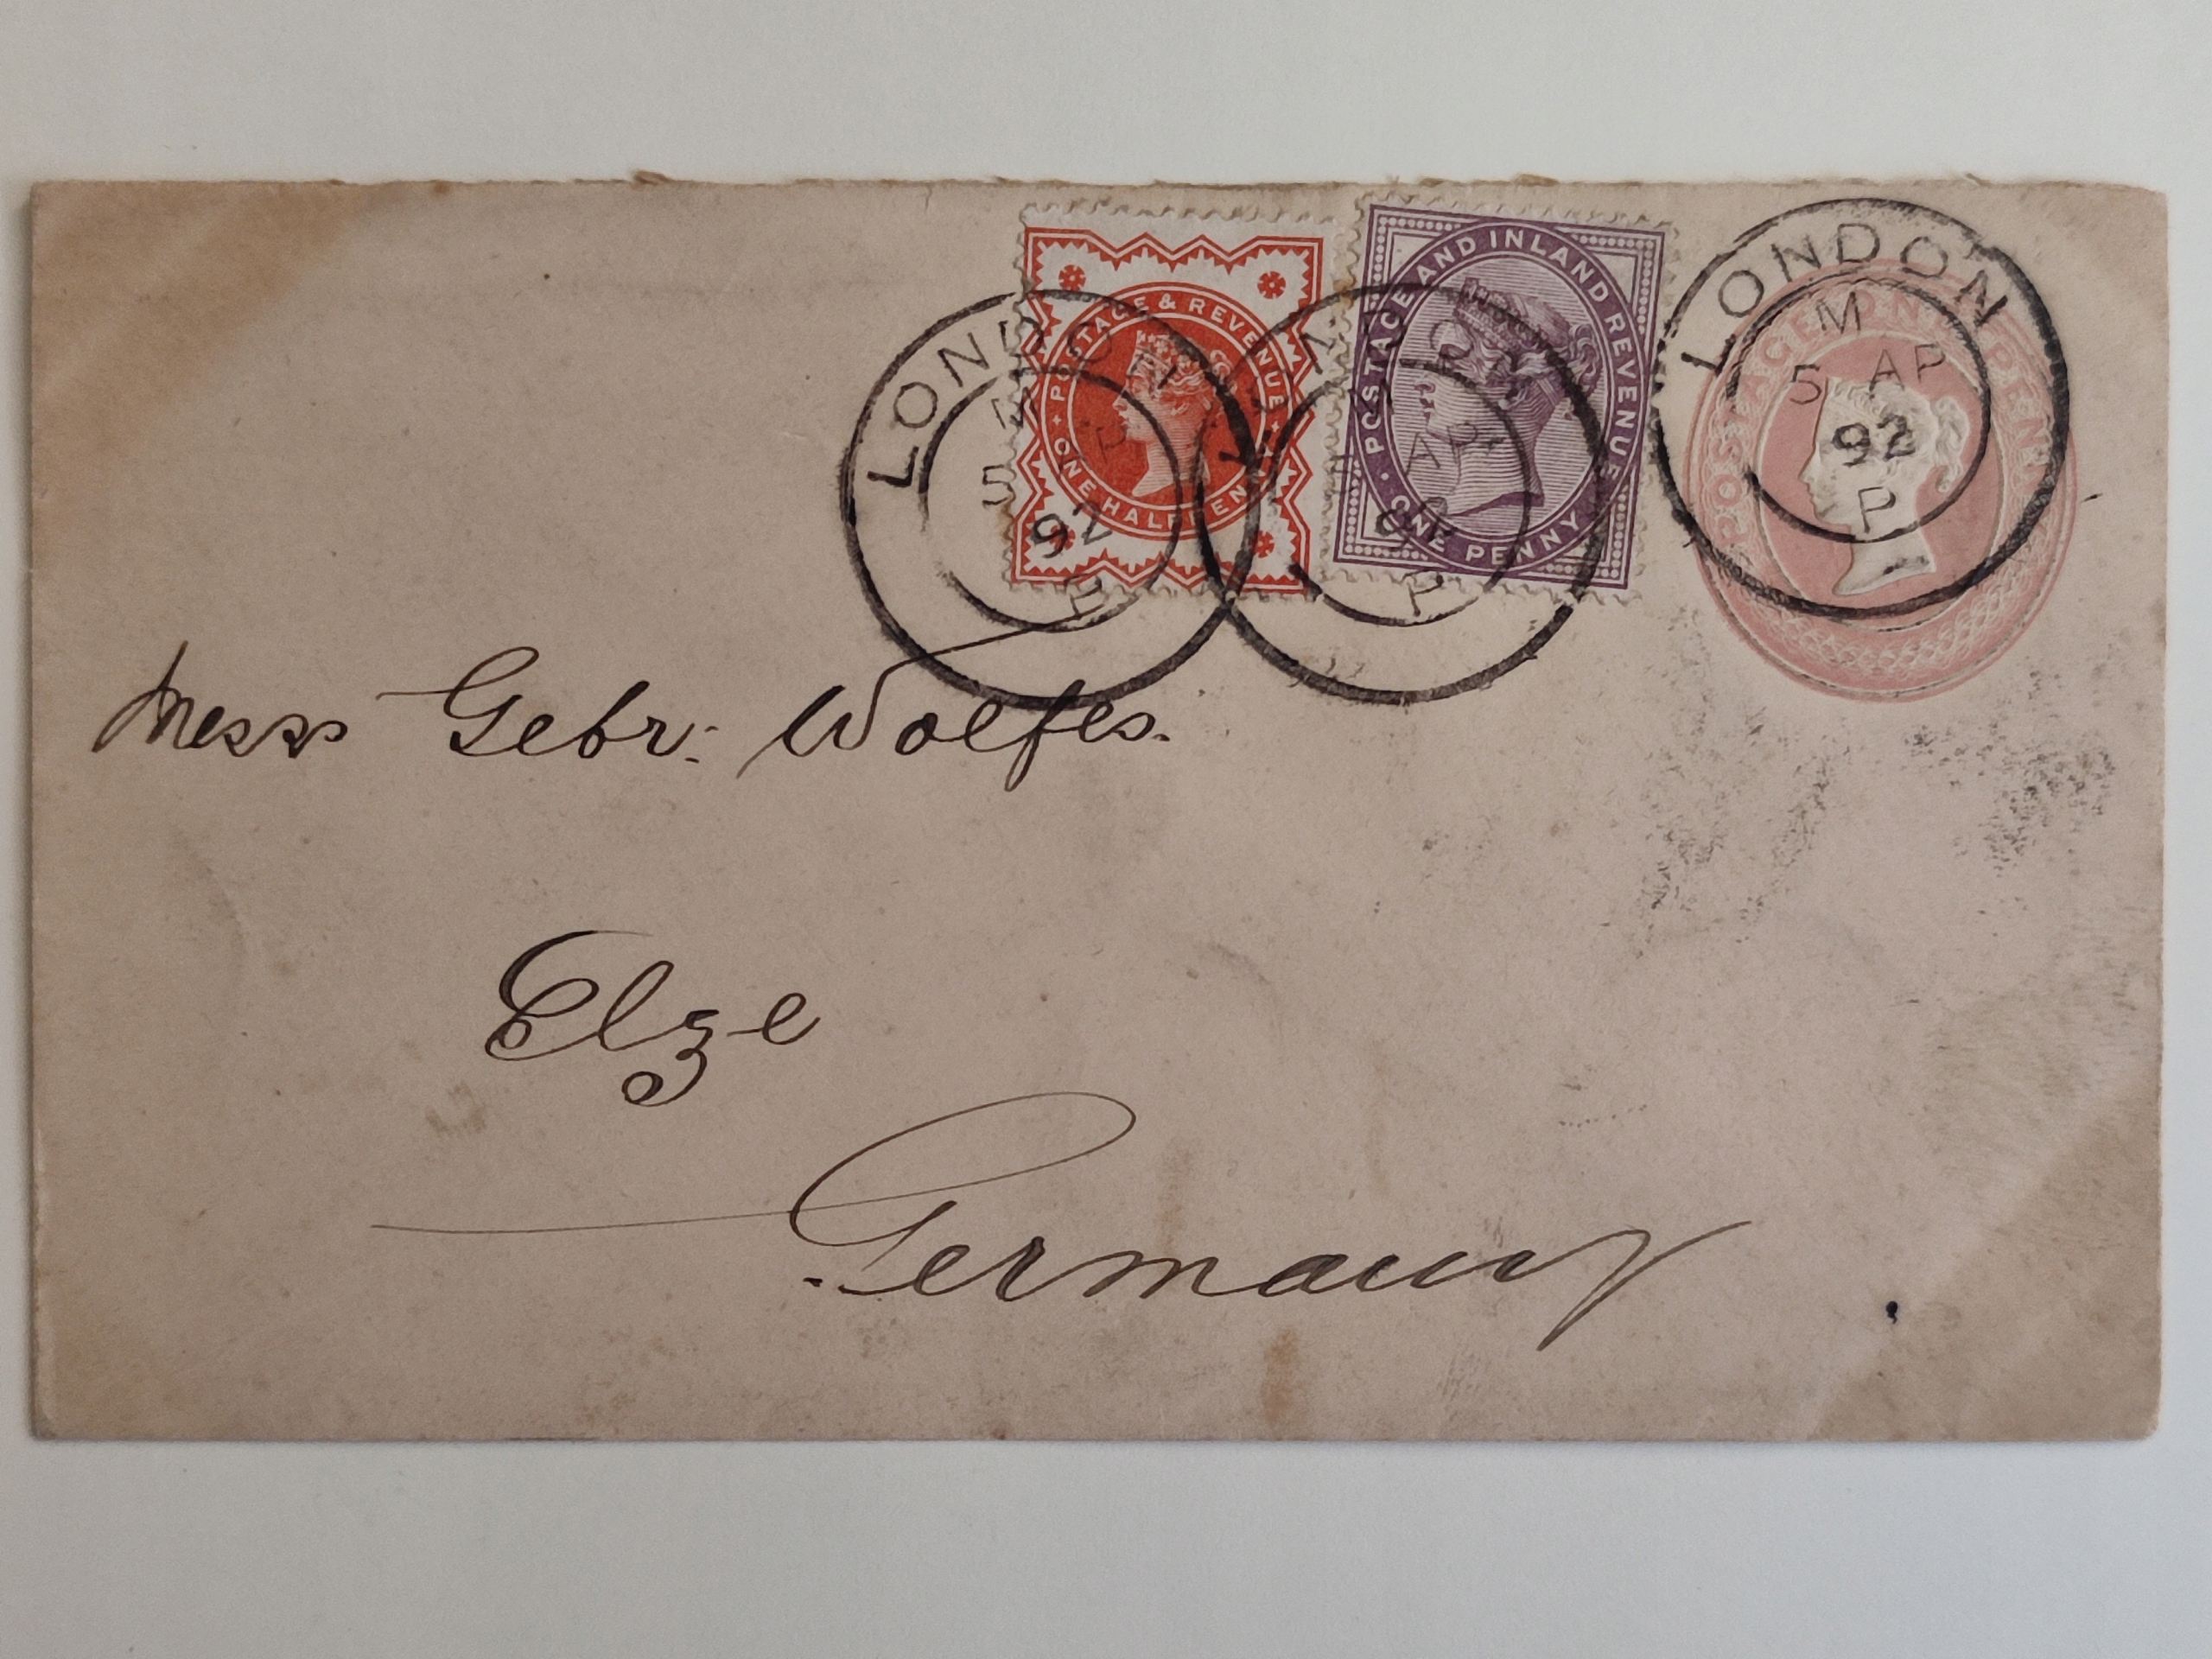 POSTAGE & REVENUE
ONE HALFPENNY
POSTAGE AND INLAND REVENUE
ONE PENNY
POSTAGE ONE PENNY
LONDON
M
5 AP
92
P
LONDON
M
5 AP
92
P
LONDON
M
AP
P
Mess Gebr: Wolfes.
Elze
Germany